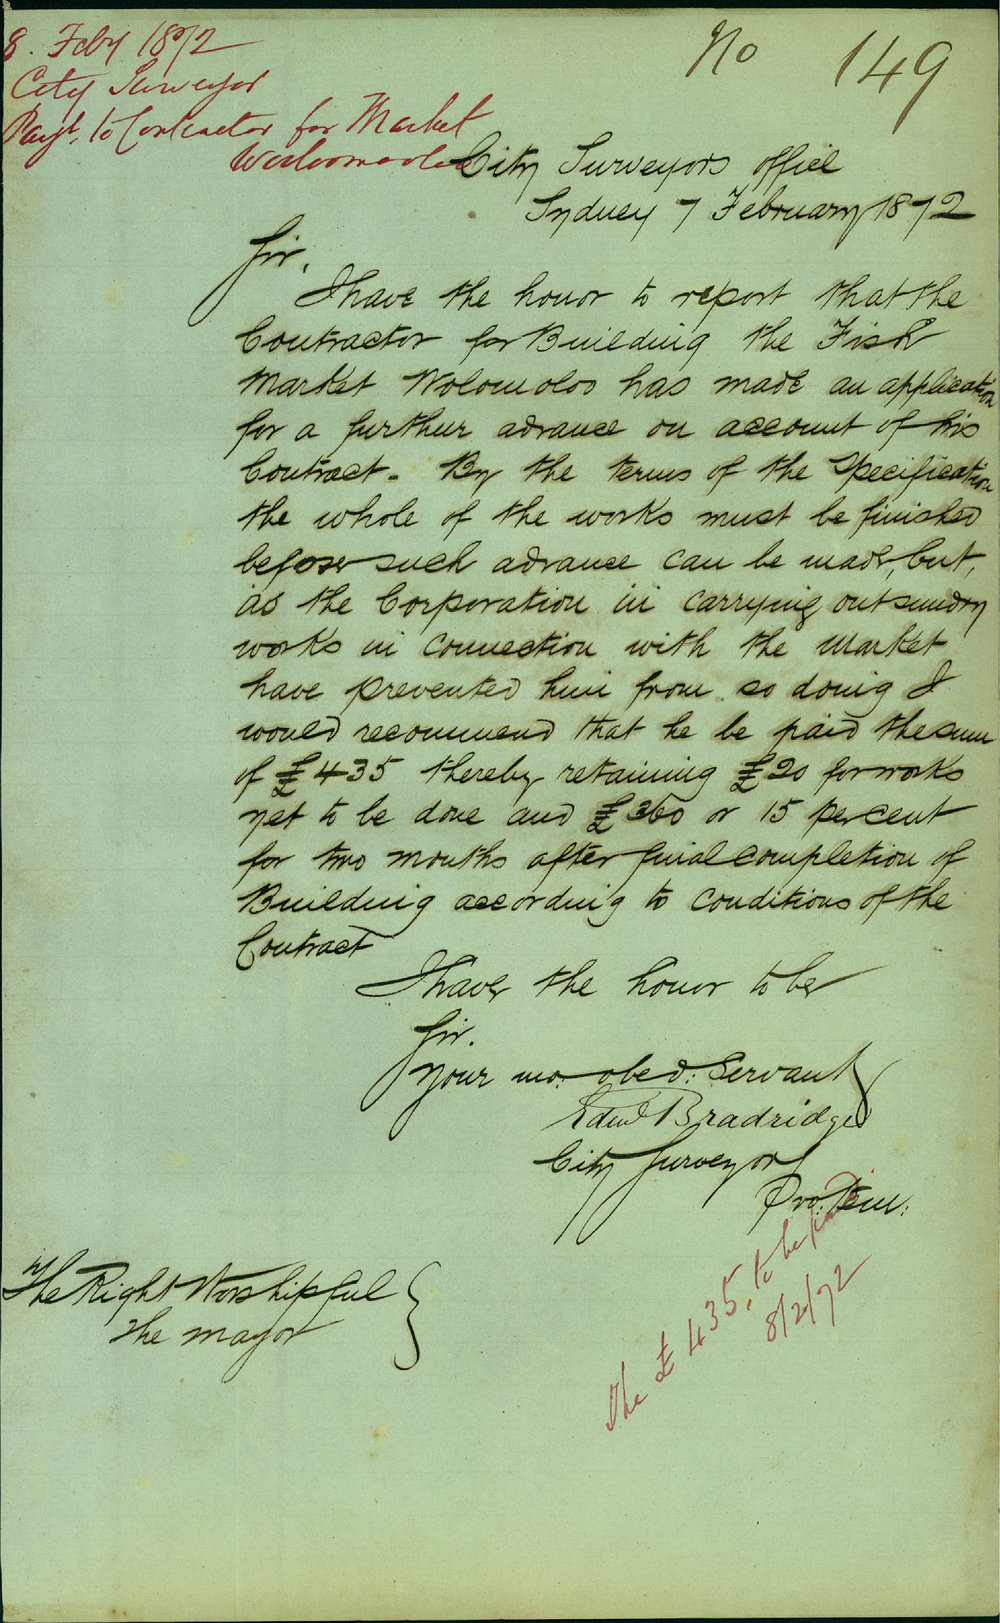 8. Feby 1872
City Surveyor
Payt. to Contractor for Market
Woolloomooloo
No 149
City Surveyors office
Sydney 7 February 1872
Sir,
I have the honor to report that the
Contractor for Building the Fish
Market Wolomoloo has made an application
for a further advance on account of his
Contract - By the terms of the Specification
the whole of the works must be finished
before such advance can be made, but,
as the Corporation in carrying out sundry
works in connection with the Market
have prevented him from so doing I
would recommend that he be paid the sum
of £435 thereby retaining £20 for works
yet to be done and £360 or 15 per cent
for two months after final completion of
Building according to conditions of the
Contract
I have the honor to be
Sir.
Your mo. obed. Servant
Edwd Bradridge
City Surveyor
Pro. Tem.
The Right Worshipful
The Mayor
The £435. to be paid
8/2/72